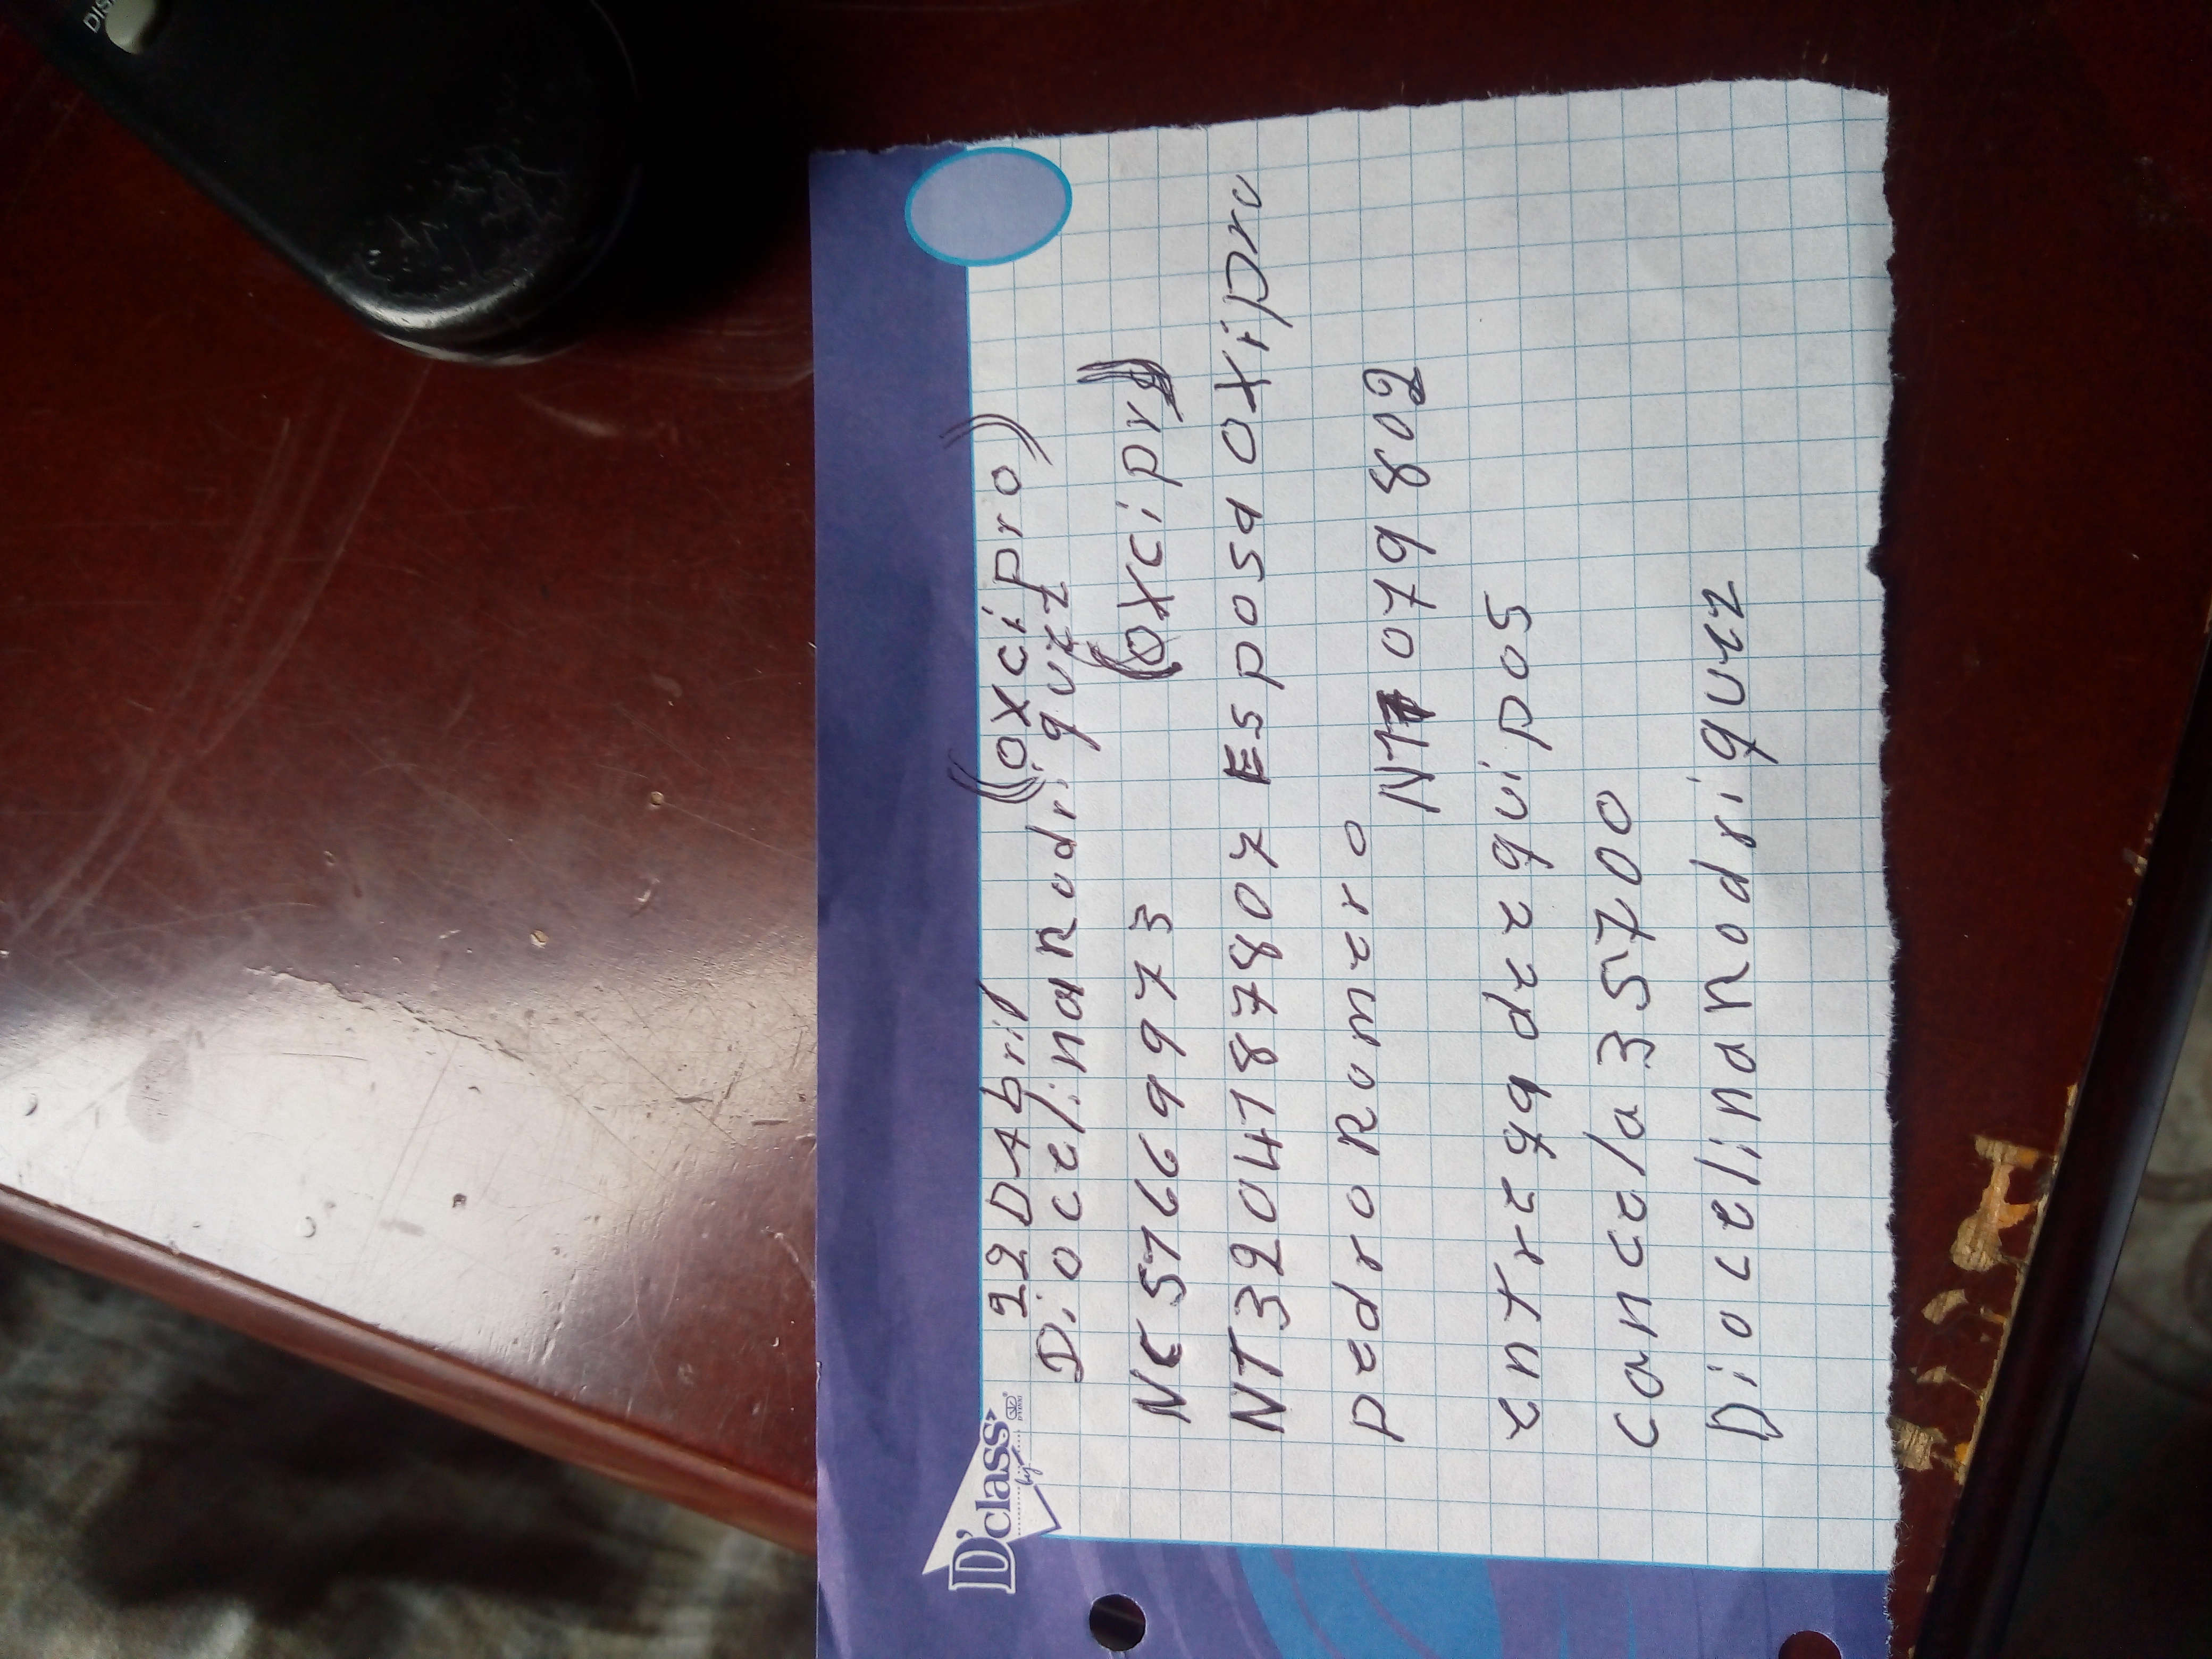 D'class
22 D Abril ((oxcipro))
Diocelina Rodriguez
NC 51669973 (oxcipro)
NT 3204187807 Esposa oxipro
pedro Romero
NT 079802
entrega de equipos
cancela 35700
Diocelina Rodriguez
DIS